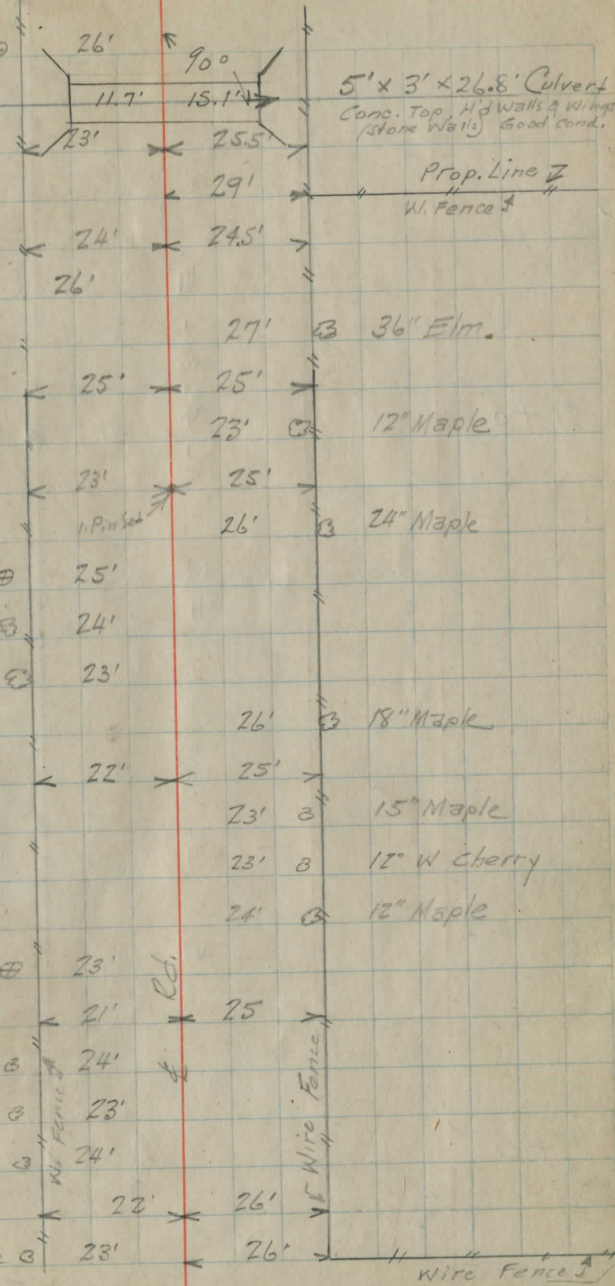 26'
90°
5' x 3' x 26.8' Culvert
11.7' 15.1'
Conc. Top, H'd Walls & Wings
(stone Walls) Good Cond.
23' 25.5'
Prop. Line
29'
W. Fence
24' 24.5'
26'
27' 36" Elm.
25' 25'
23' 12" Maple
23' 25'
I. Pin Set 26' 24" Maple
25'
24'
23'
26' 18" Maple
22' 25'
23' 15" Maple
23' 12" W Cherry
24' 12" Maple
23'
Rd.
21' 25
24'
℄
W. Fence
Wire Fence
23'
24'
22' 26'
23' 26'
Wire Fence